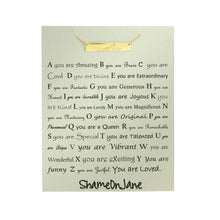 A you are Amazing B you are Brave C you are
Cool D you are Divine E you are Extraordinary
F you are Fantastic G you are Generous H you are
you are Joyous K you
are Kind L you are Loved M you are Magnificent N
you are O you are Original P you are
Phenomenal Q you are a Queen R you are
S you are Special T you are Talented U you
are V you are Vibrant W you are
Wonderful X you are eXciting Y you are
funny Z you are You are Loved.
ShameOnJane